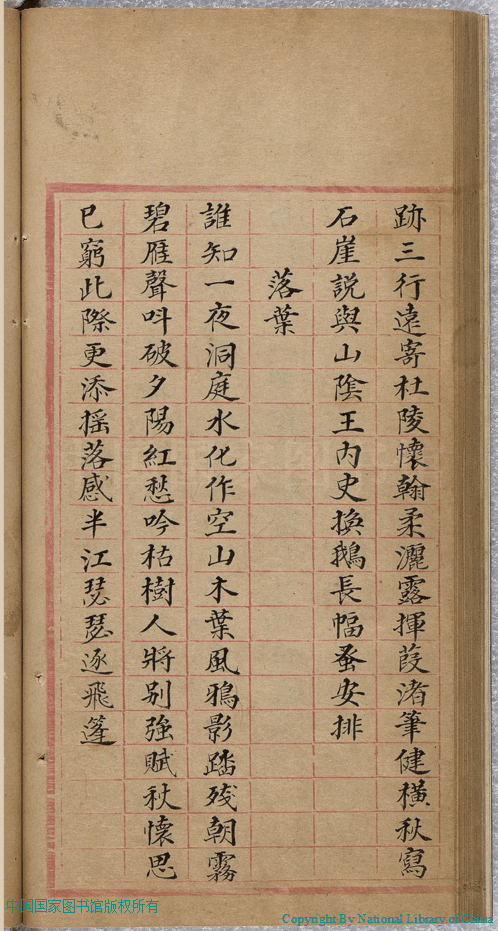 跡三行遠寄杜陵懷翰柔灑露揮葭渚筆健橫秋寫
石崖説與山陰王内史換鵝長幅蚤安排
落葉
誰知一夜洞庭水化作空山木葉風鴉影踏殘朝霧
碧雁聲呌破夕陽紅愁吟枯樹人將别強賦秋懷思
已窮此際更添摇落感半江瑟瑟逐飛蓬
中国国家图书馆版权所有
Copyright By National Library of China